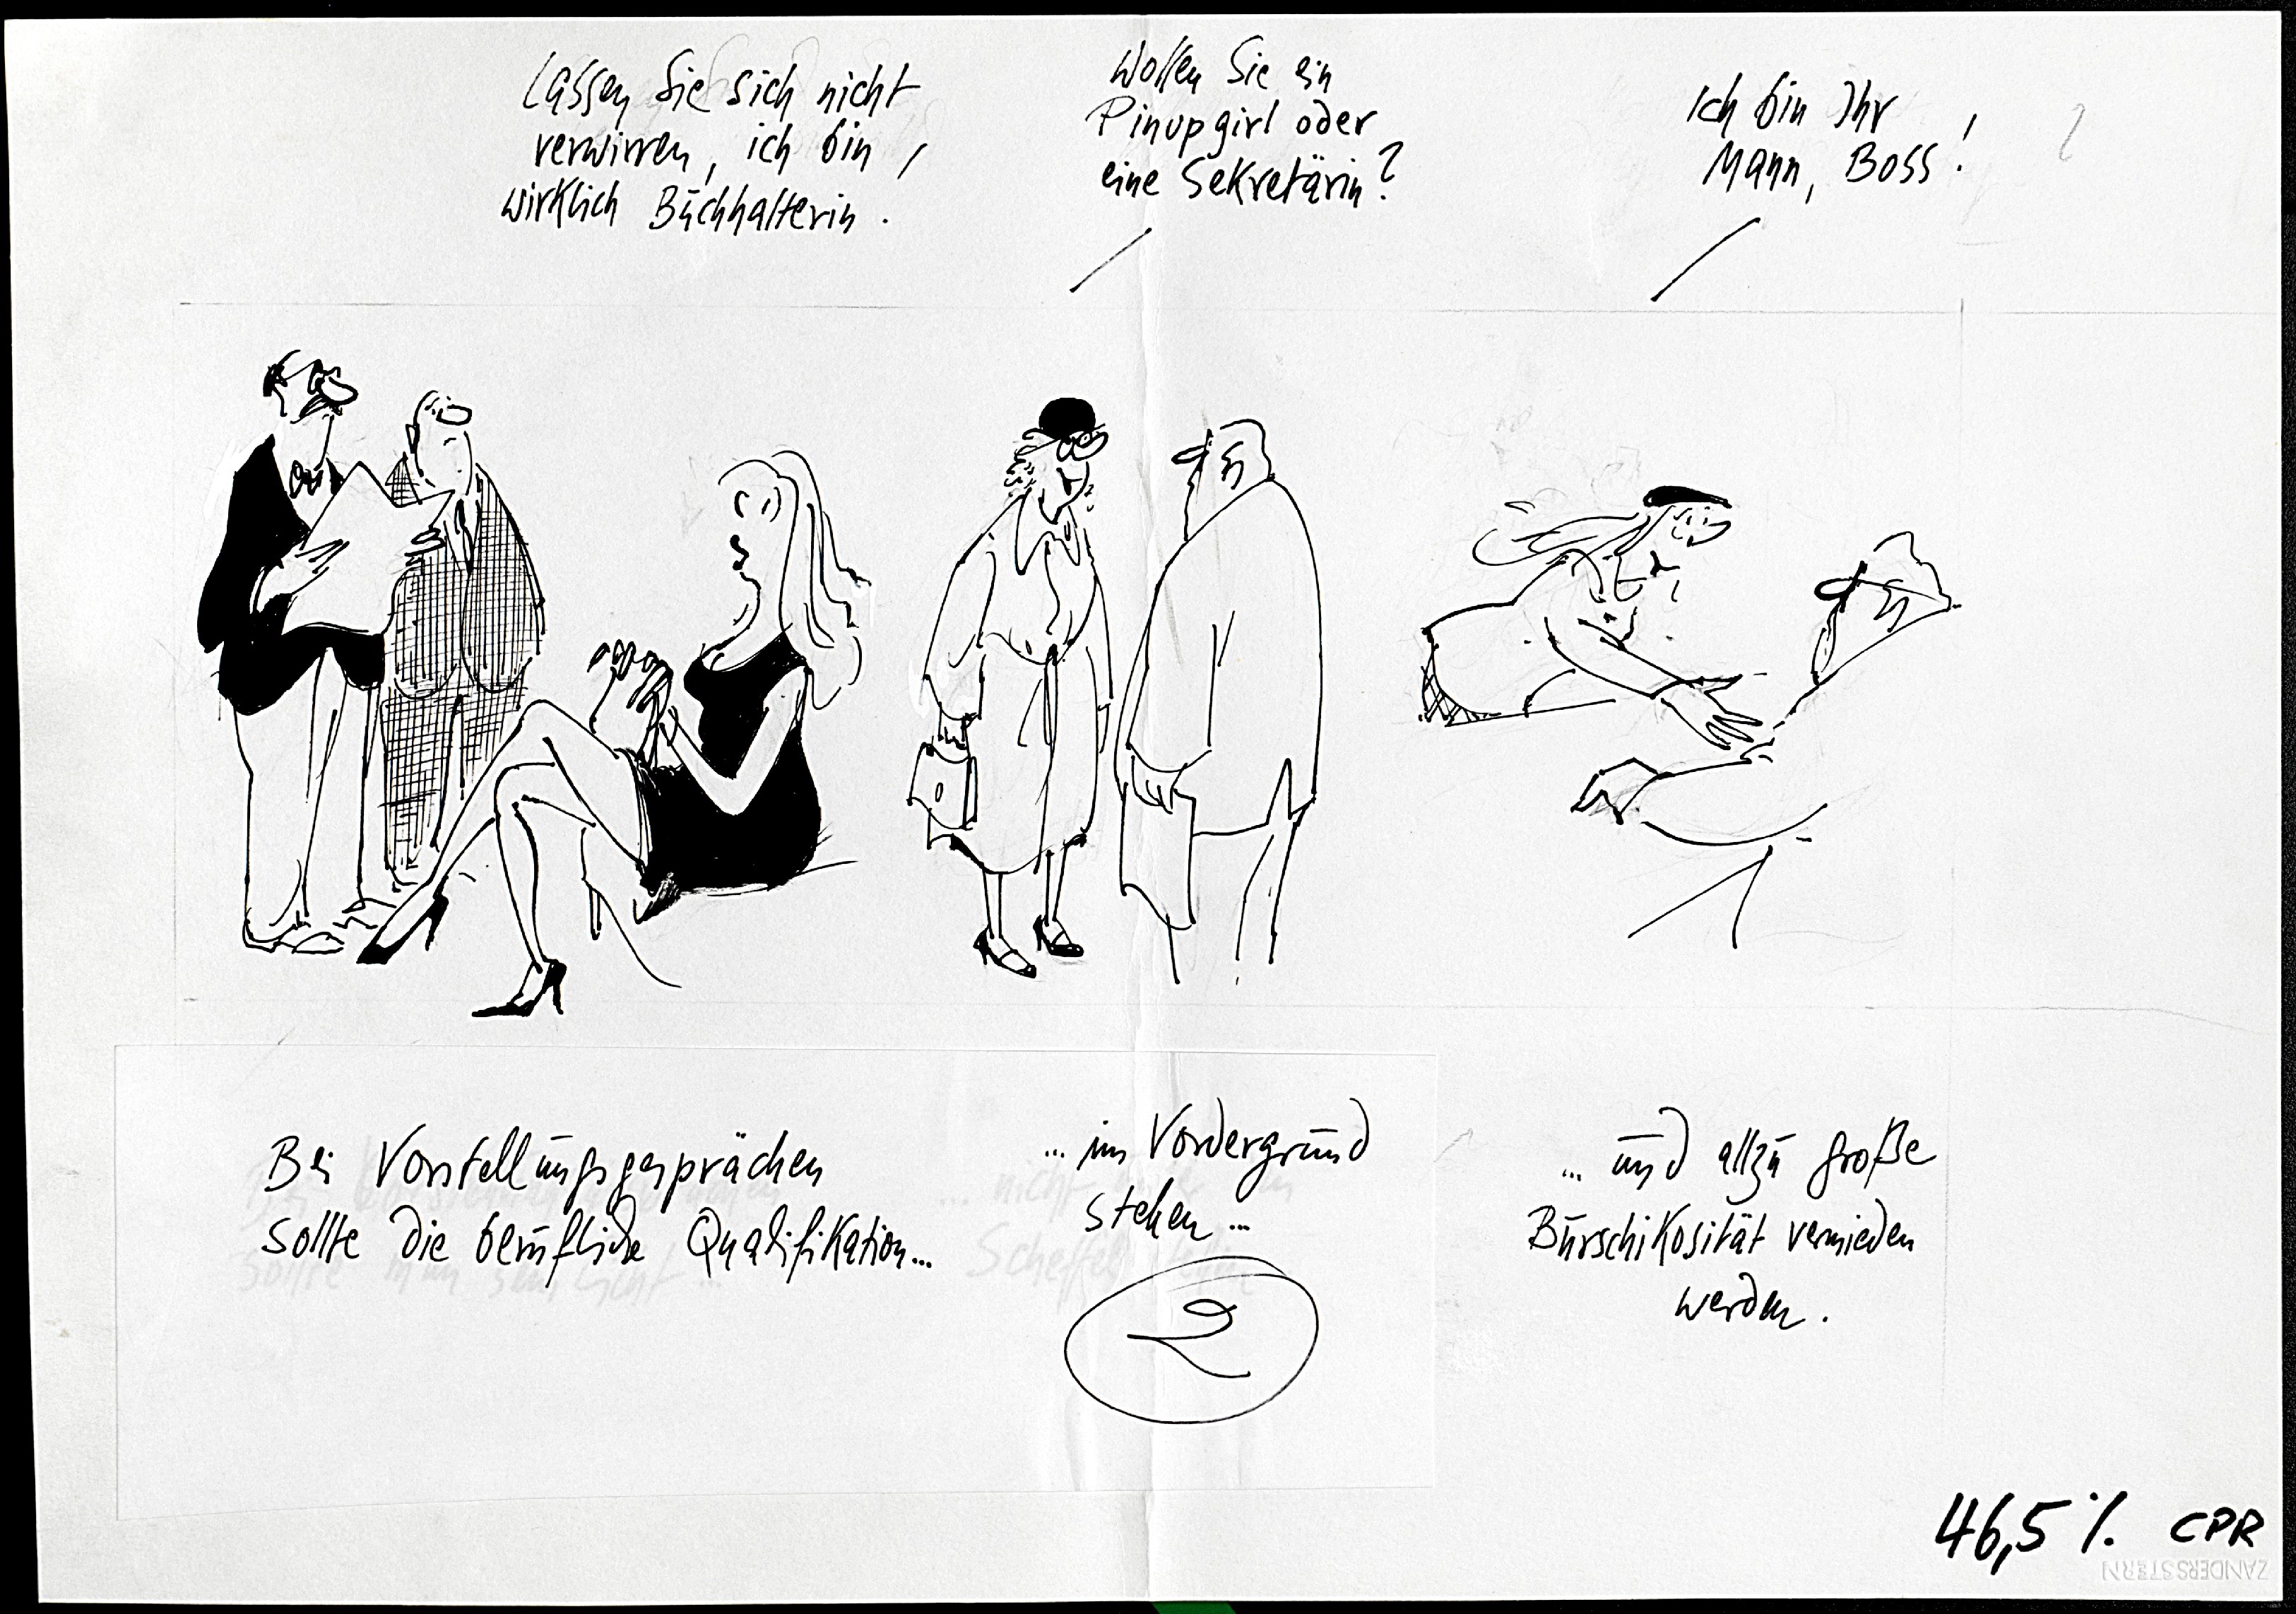 Lassen Sie sich nicht
verwirren, ich bin
wirklich Buchhalterin.
Wollen Sie ein
Pinupgirl oder
eine Sekretärin?
Ich bin Ihr
Mann, Boss!
?
Bei Vorstellungsgesprächen
sollte die berufliche Qualifikation...
... im Vordergrund
stehen ...
... und allzu große
Burschikosität vermieden
werden.
2
46,5 % CPR
ZANDERSSTERN